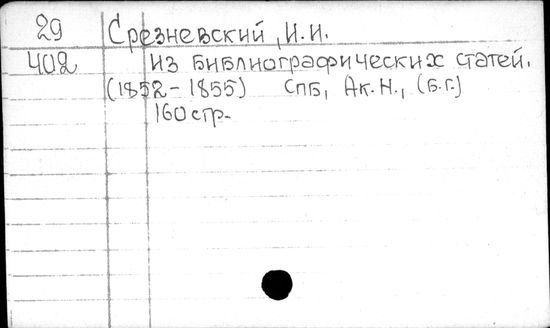 29 Срезневский, И.И.
402 Из библиографических статей.
(1852-1855) СПБ, Ак.Н., (б.г.)
160 стр.